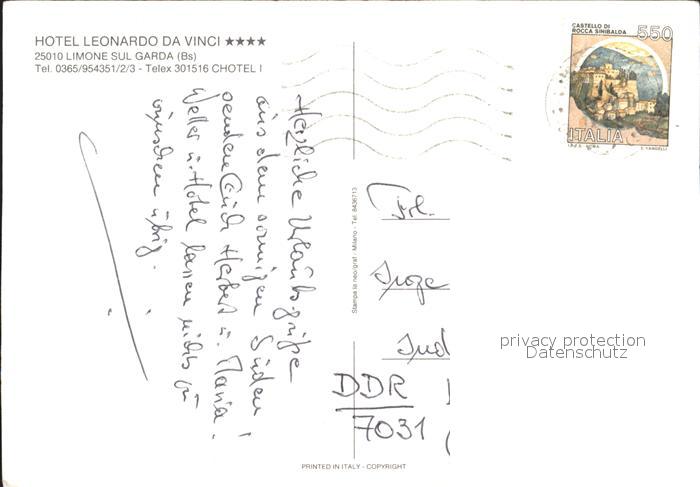 HOTEL LEONARDO DA VINCI ★★★★
25010 LIMONE SUL GARDA (Bs)
Tel. 0365/954351/2/3 - Telex 301516 CHOTEL I
CASTELLO DI
ROCCA SINIBALDA
550
ITALIA
I.P.Z.S. ROMA
E. VANGELLI
Herzliche Urlaubsgrüße
aus dem sonnigen Süden
senden Euch Herbert u. Maria!
Wetter u. Hotel lassen nichts zu
wünschen übrig.
Stampa la neo/graf - Milano - Tel. 8436713
Frl.
DDR
7031
privacy protection
Datenschutz
PRINTED IN ITALY - COPYRIGHT